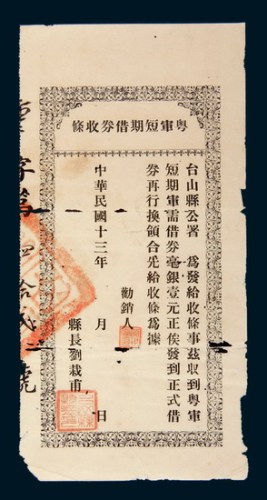 粵軍短期借券收條
台山縣公署　為發給收條事茲收到粵軍
短期軍需借券毫銀壹元正俟發到正式借
券再行換領合先給收條為據
勸銷人
中華民國十三年　月　日
縣長劉栽甫
字第四拾號